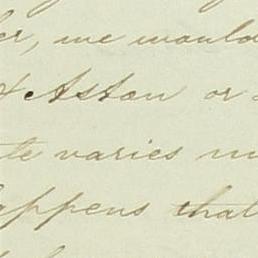 er, we would
Aston or
te varies
happens that